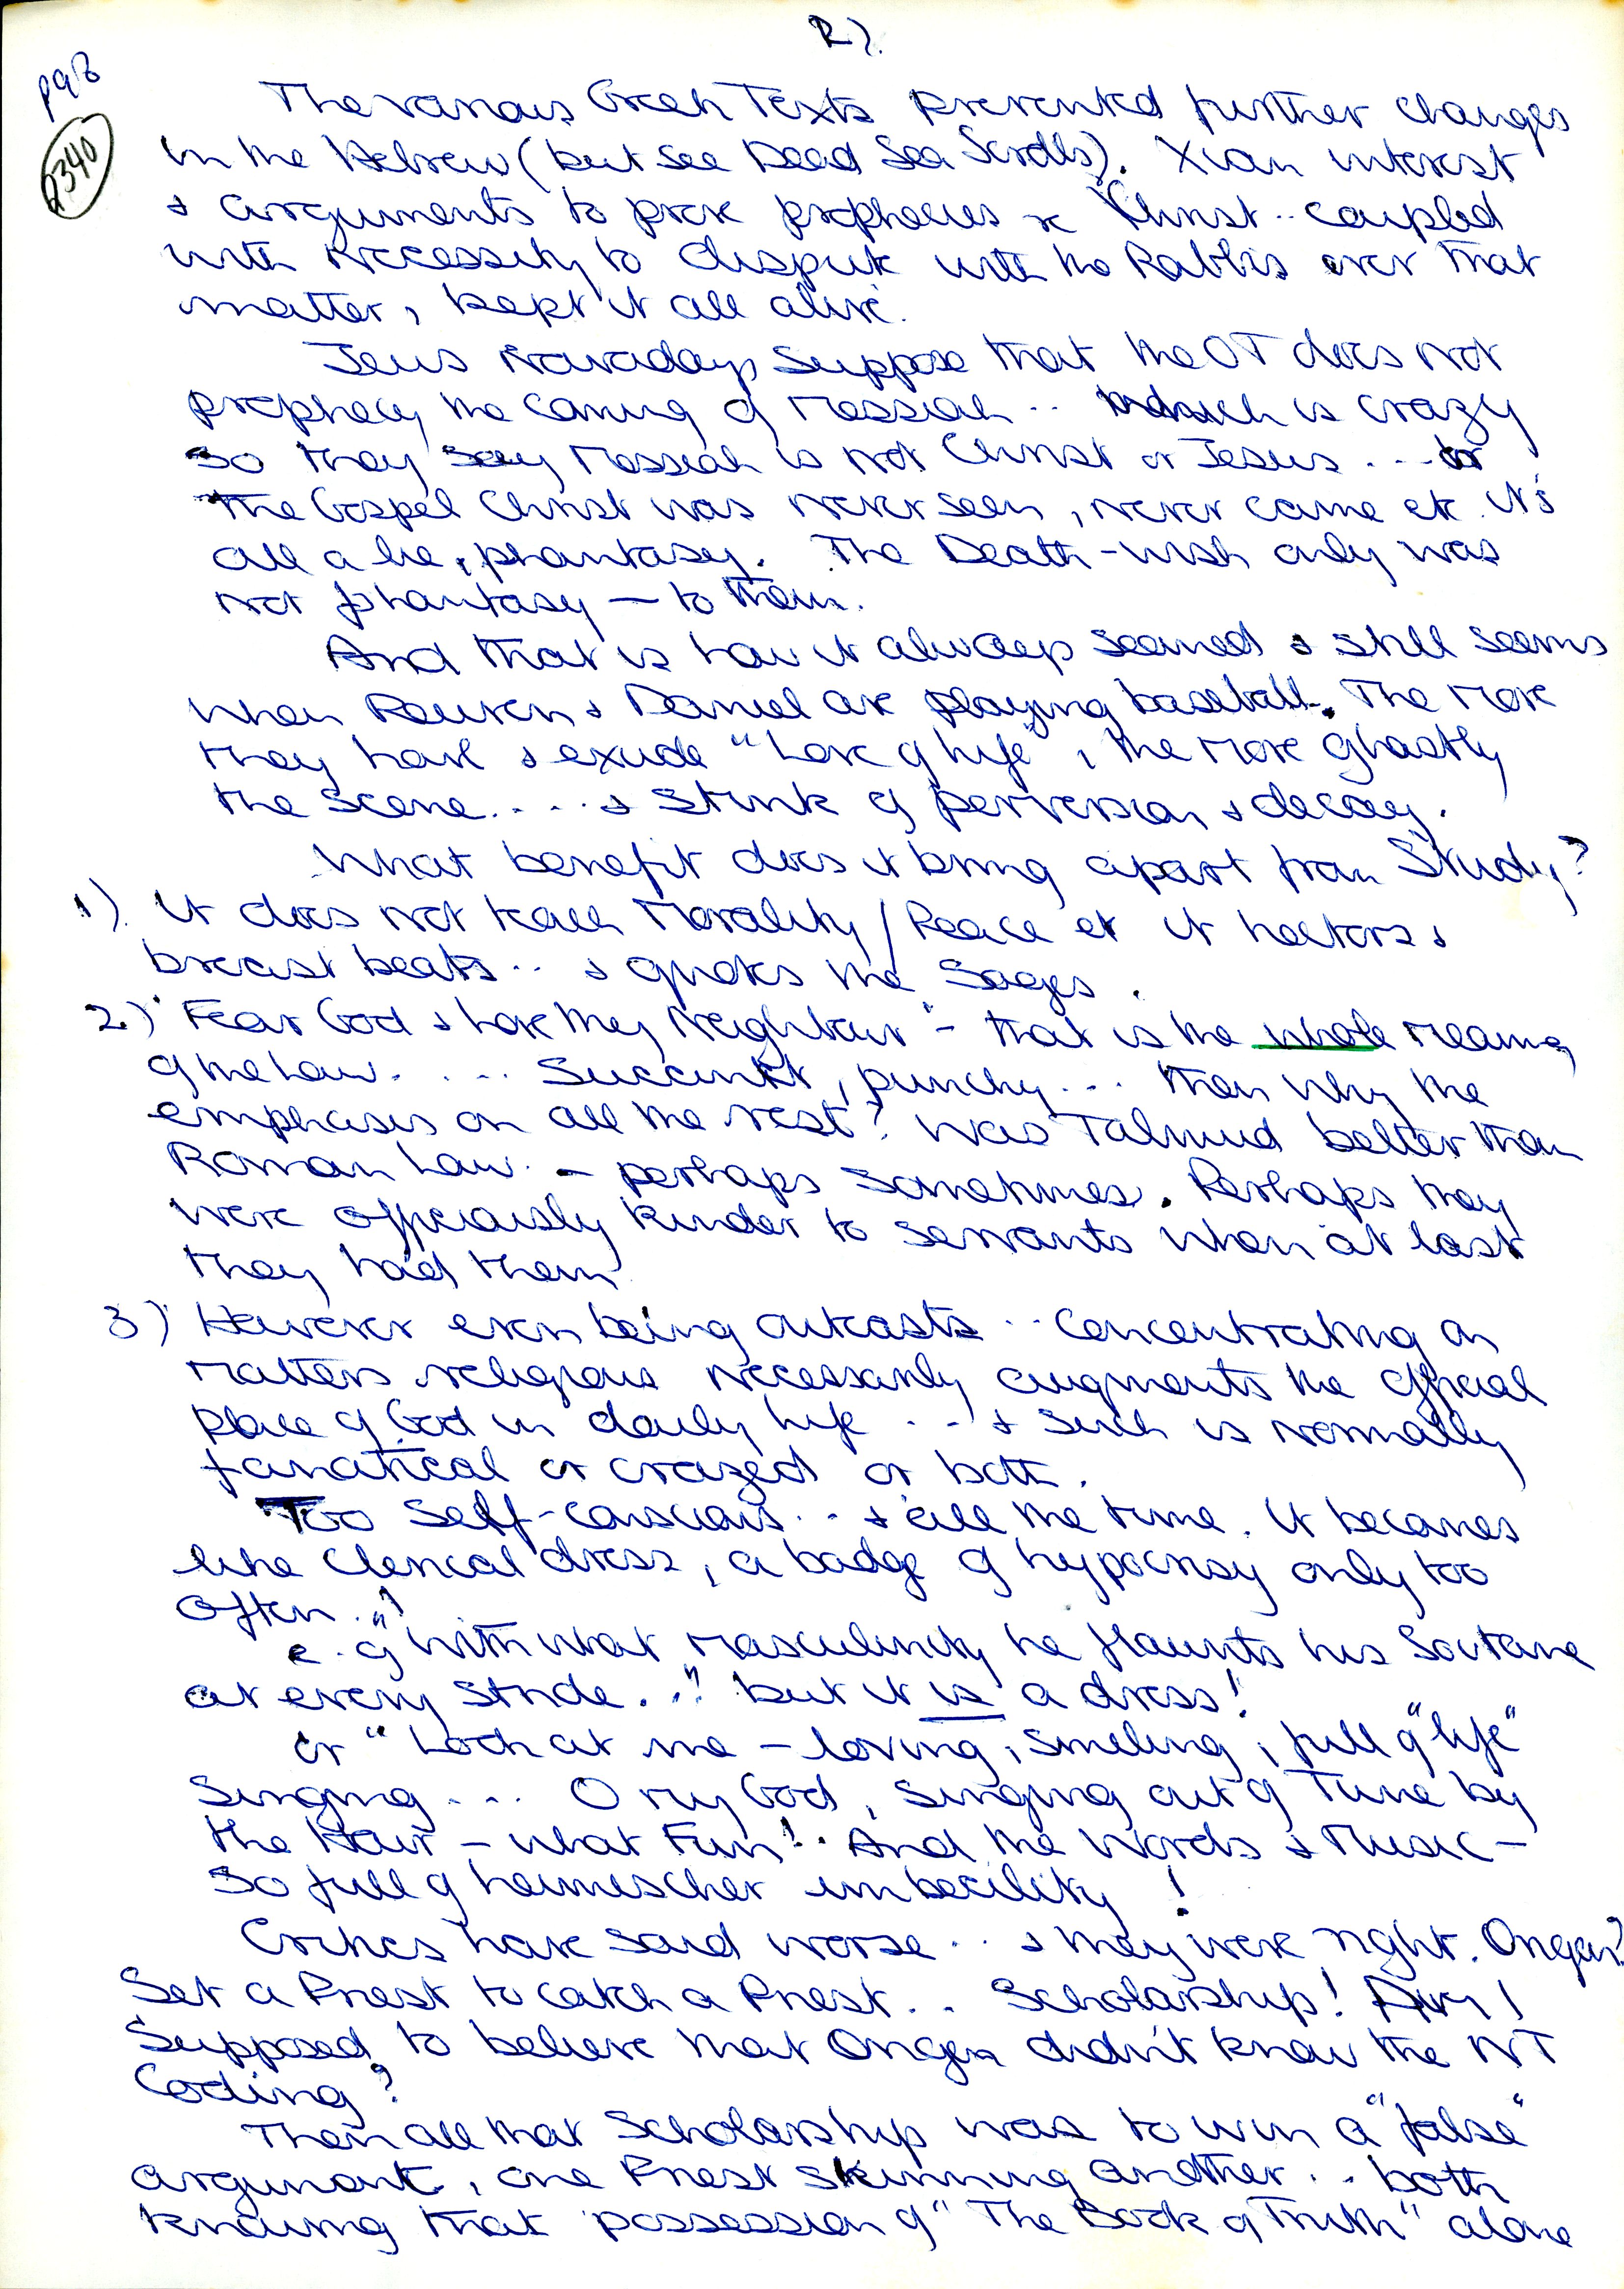 2).
pg 8
2340
The various Greek Texts prevented further changes
in the Hebrew (but see Dead Sea Scrolls). Xian interest
& arguments to prove prophecies re Christ .. coupled
with necessity to dispute with the Rabbis over that
matter, kept it all alive.
Jews nowadays suppose that the OT does not
prophecy the coming of Messiah .. which is crazy
so they say Messiah is not Christ or Jesus ... or
the Gospel Christ was never seen, never came etc. it's
all a lie, phantasy. The Death-wish only was
not phantasy — to them.
And that is how it always seemed & still seems
when Reuven & Daniel are playing baseball. The more
they have & exude "Love of life", the more ghastly
the scene.... & stink of perversion & decay.
What benefit does it bring apart from Study?
1). It does not teach Morality/Peace etc it hectors &
breast beats .. & quotes the Sages.
2.) "Fear God & love they Neighbour" - that is the whole meaning
of the Law. ... Succinct, punchy ... then why the
emphasis on all the rest? Was Talmud better than
Roman Law. - perhaps sometimes. Perhaps they
were officiously kinder to servants when at last
they had them.
3) However even being outcasts .. concentrating on
matters religious necessarily augments the official
place of God in daily life ... & such is normally
fanatical or crazed or both.
Too self-conscious .. & all the time. It becomes
like clerical dress, a badge of hypocrisy only too
often.."
e.g "with what masculinity he flaunts his Soutane
at every stride.." but it is a dress!
or "Look at me - loving, smiling, full of "life"
singing ... O my God, singing out of Tune by
the Hour - what Fun! And the words & Music -
so full of heimischer imbecility!
Critics have said worse .. & they were right. Origen?
Set a Priest to catch a Priest .. Scholarship!
Supposed to believe that Origen didn't know the NT
Coding?
Then all that scholarship was to win a "false"
argument, one Priest skinning another .. both
knowing that possession of "The Book of Truth" alone